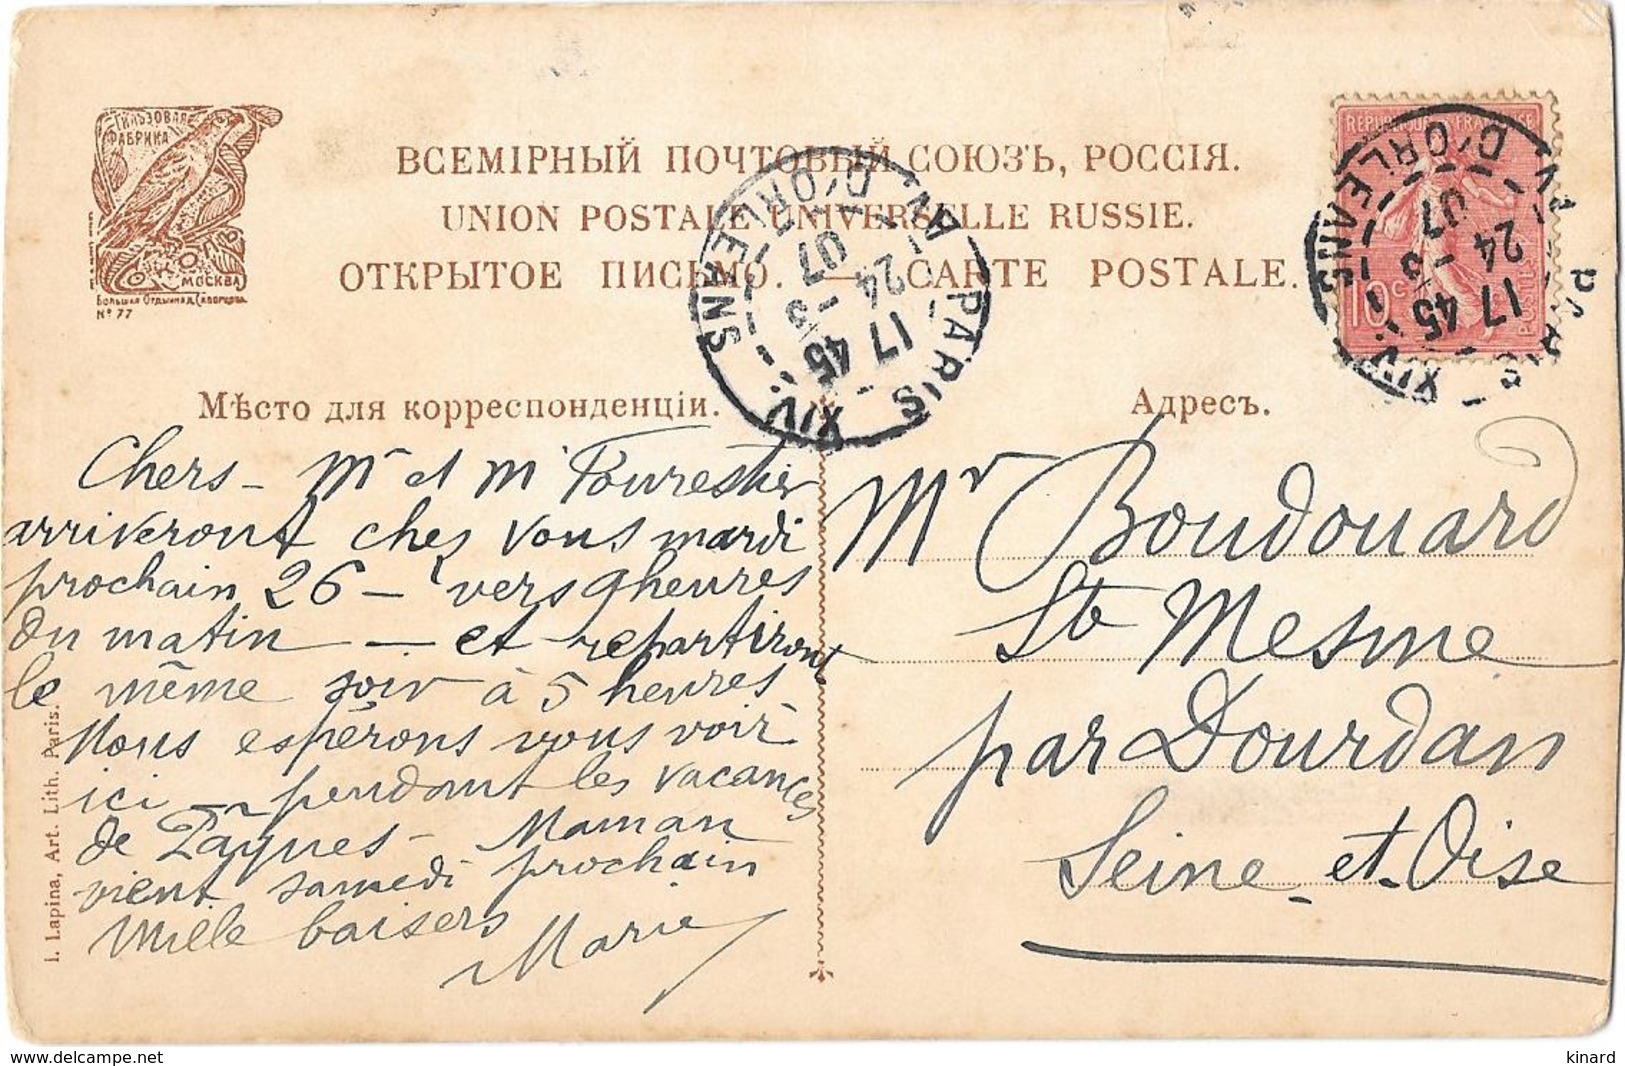 ГИЛЬЗОВАЯ
ФАБРИКА
СОКОЛЪ
МОСКВА
№ 77
ВСЕМІРНЫЙ ПОЧТОВЫЙ СОЮЗЪ, РОССІЯ.
UNION POSTALE UNIVERSELLE RUSSIE.
ОТКРЫТОЕ ПИСЬМО. — CARTE POSTALE.
REPUBLIQUE FRANÇAISE
10 c
POSTES
PARIS XIV
AV. D'ORLEANS
17 45
24 -3
07
PARIS XIV
AV. D'ORLEANS
17 45
24 -3
07
Мѣсто для корреспонденціи.
Адресъ.
Chers – Mr et M Fourestier
arriveront chez vous mardi
prochain 26 – vers 9 heures
du matin — et repartiront
le même soir à 5 heures
Nous espérons vous voir
ici – pendant les vacances
de Pâques – Maman
vient samedi prochain
Mille baisers
Marie
Mr Boudouard
Ste Mesme
par Dourdan
Seine et Oise
I. Lapina, Art. Lith. Paris.
www.delcampe.net
kinard